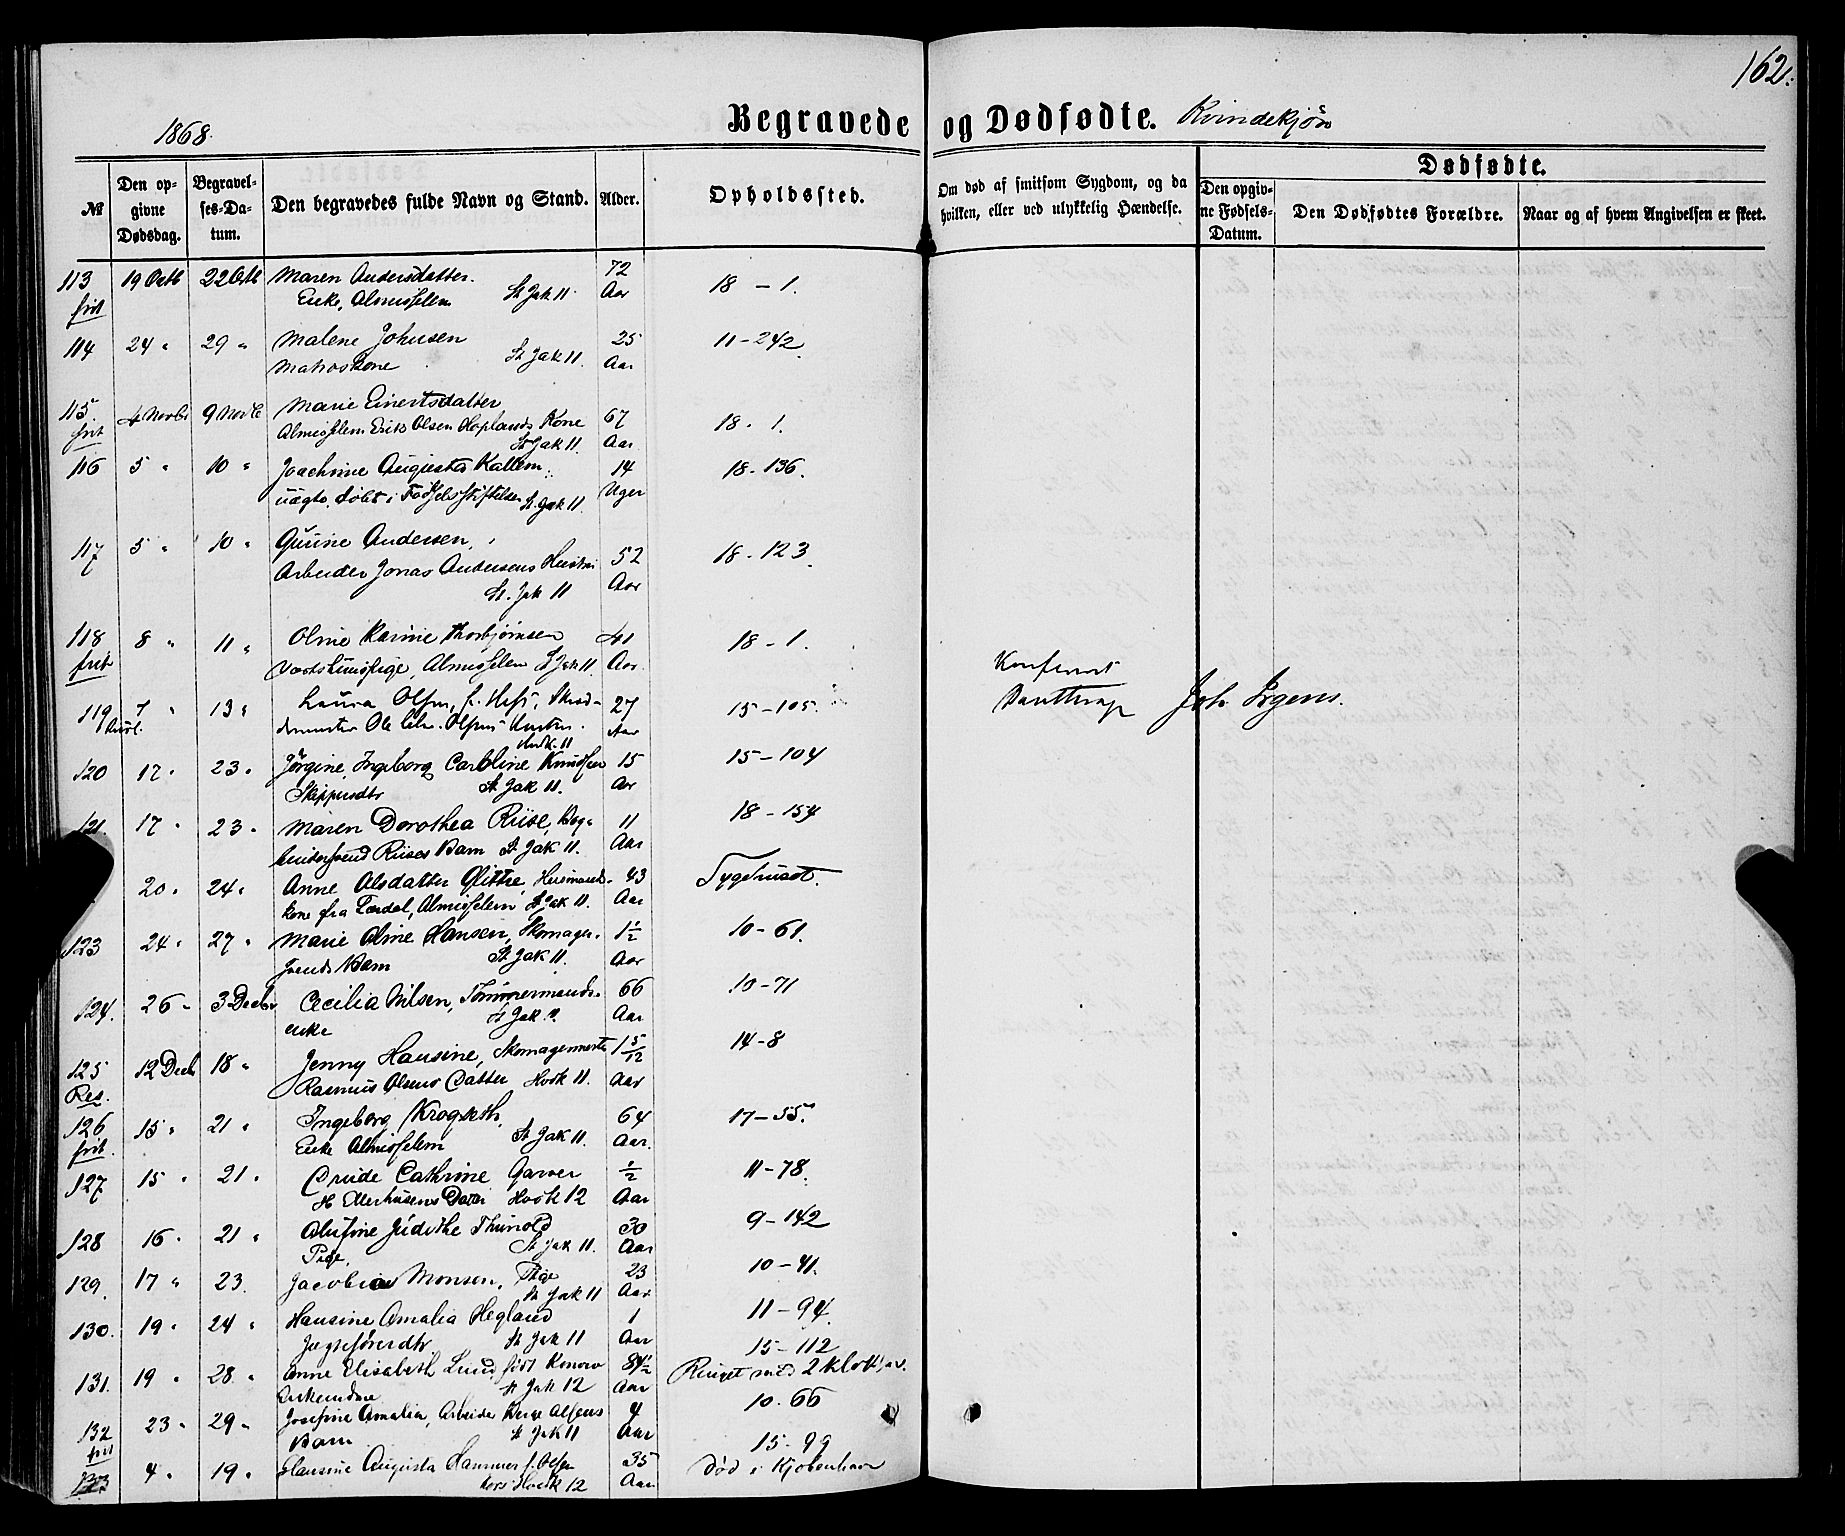 162.
1868.
Begravede og Dødfødte. Kvindekjøn
Dødfødte.
№
Den opgivne Dødsdag.
Begravelses-Datum.
Den begravedes fulde Navn og Stand.
Alder.
Opholdssted.
Om død af smitsom Sygdom, og da hvilken, eller ved ulykkelig Hændelse.
Den opgivne Fødsels-Datum.
Den Dødfødtes Forældre.
Naar og af hvem Angivelsen er skeet.
113 19 Octb 22 Octb Maren Andersdatter. 72 18 - 1.
frit Enke, Almisselem St Jak 11. Aar
114 24 " 29 " Malene Johnsen 25 11 - 242.
Matroskone St Jak 11. Aar
115. 4 Novbr 9 Novb Marie Einertsdatter 67 18. 1.
frit Almisselem Erik Olsen Hoplands Kone Aar
St Jak 11.
116 5 " 10 " Joachime Augusta Kallem 14 18. 136.
uægte, døbt i Fødselsstiftelsen St. Jak 11. Uger
117 5 " 10 " Gurine Andersen, 52 18. 123.
Arbeider Jonas Andersens Hustru Aar
St. Jak 11
118 8 " 11 " Oline Karine Thorbjørnsen 41 18 - 1.
frit Almisselem St Jak 11. Aar.
119 7 " 13 " Laura Olsen, f. 27 15 - 105.
Ole Aar
Konfereret
Joh. Irgens.
120 17 " 23 " Jørgine Ingeborg Caroline Knudsen 15 15 - 104
Skippersdtr St Jak 11. Aar
121. 17 " 23 " Maren Dorothea Riise, Bog- 11 18 - 154
bindersvend Riises Barn St Jak 11. Aar
20 " 24 " Anne Olsdatter Husmands- 43 Sygehuset.
kone fra Lærdal, Almisselem St Jak 11. Aar
123 24 " 27 " Marie Oline Hansen, Skomager- 1½ 10 - 61.
svends Barn St Jak 11. Aar
124. 26 " 3 Decbr Cecilia Nilsen, Tømmermands- 66 10 - 71
enke St Jak 11. Aar
125 12 Decb 18 " Jenny Hansine, Skomagermester 1 5/12 14 - 8
Res. Rasmus Olsens Datter Aar
126 15 " 21 " Ingeborg 64 17 - 55.
frit. Enke Almisselem St Jak 11. Aar.
127 15 " 21 " Cathrine ½ 11 - 78.
12 Aar
128 16 " 21 " Judithe 30 9 - 142
Pige, St Jak 11. Aar
129. 17 " 23. Monsen, Pige 23 10 - 41.
St Jak 11 Aar
130. 19 " 24 " Hansine Amalia Hegland 1 11 - 94.
St Jak 11 Aar
131. 19 " 28 " Anne Elisabeth Lund, født 84½ 15 - 112
St Jak 12 Aar Ringet med 2 Klokker.
132 23 " 29 " Josefine Amalia, Arbeider 4 10. 66
frit Barn St Jak 11 Aar
133 4 " 19 " Hansine Augusta Hammer f. Olsen 35 15 - 99
12 Aar Død i Kjøbenhavn